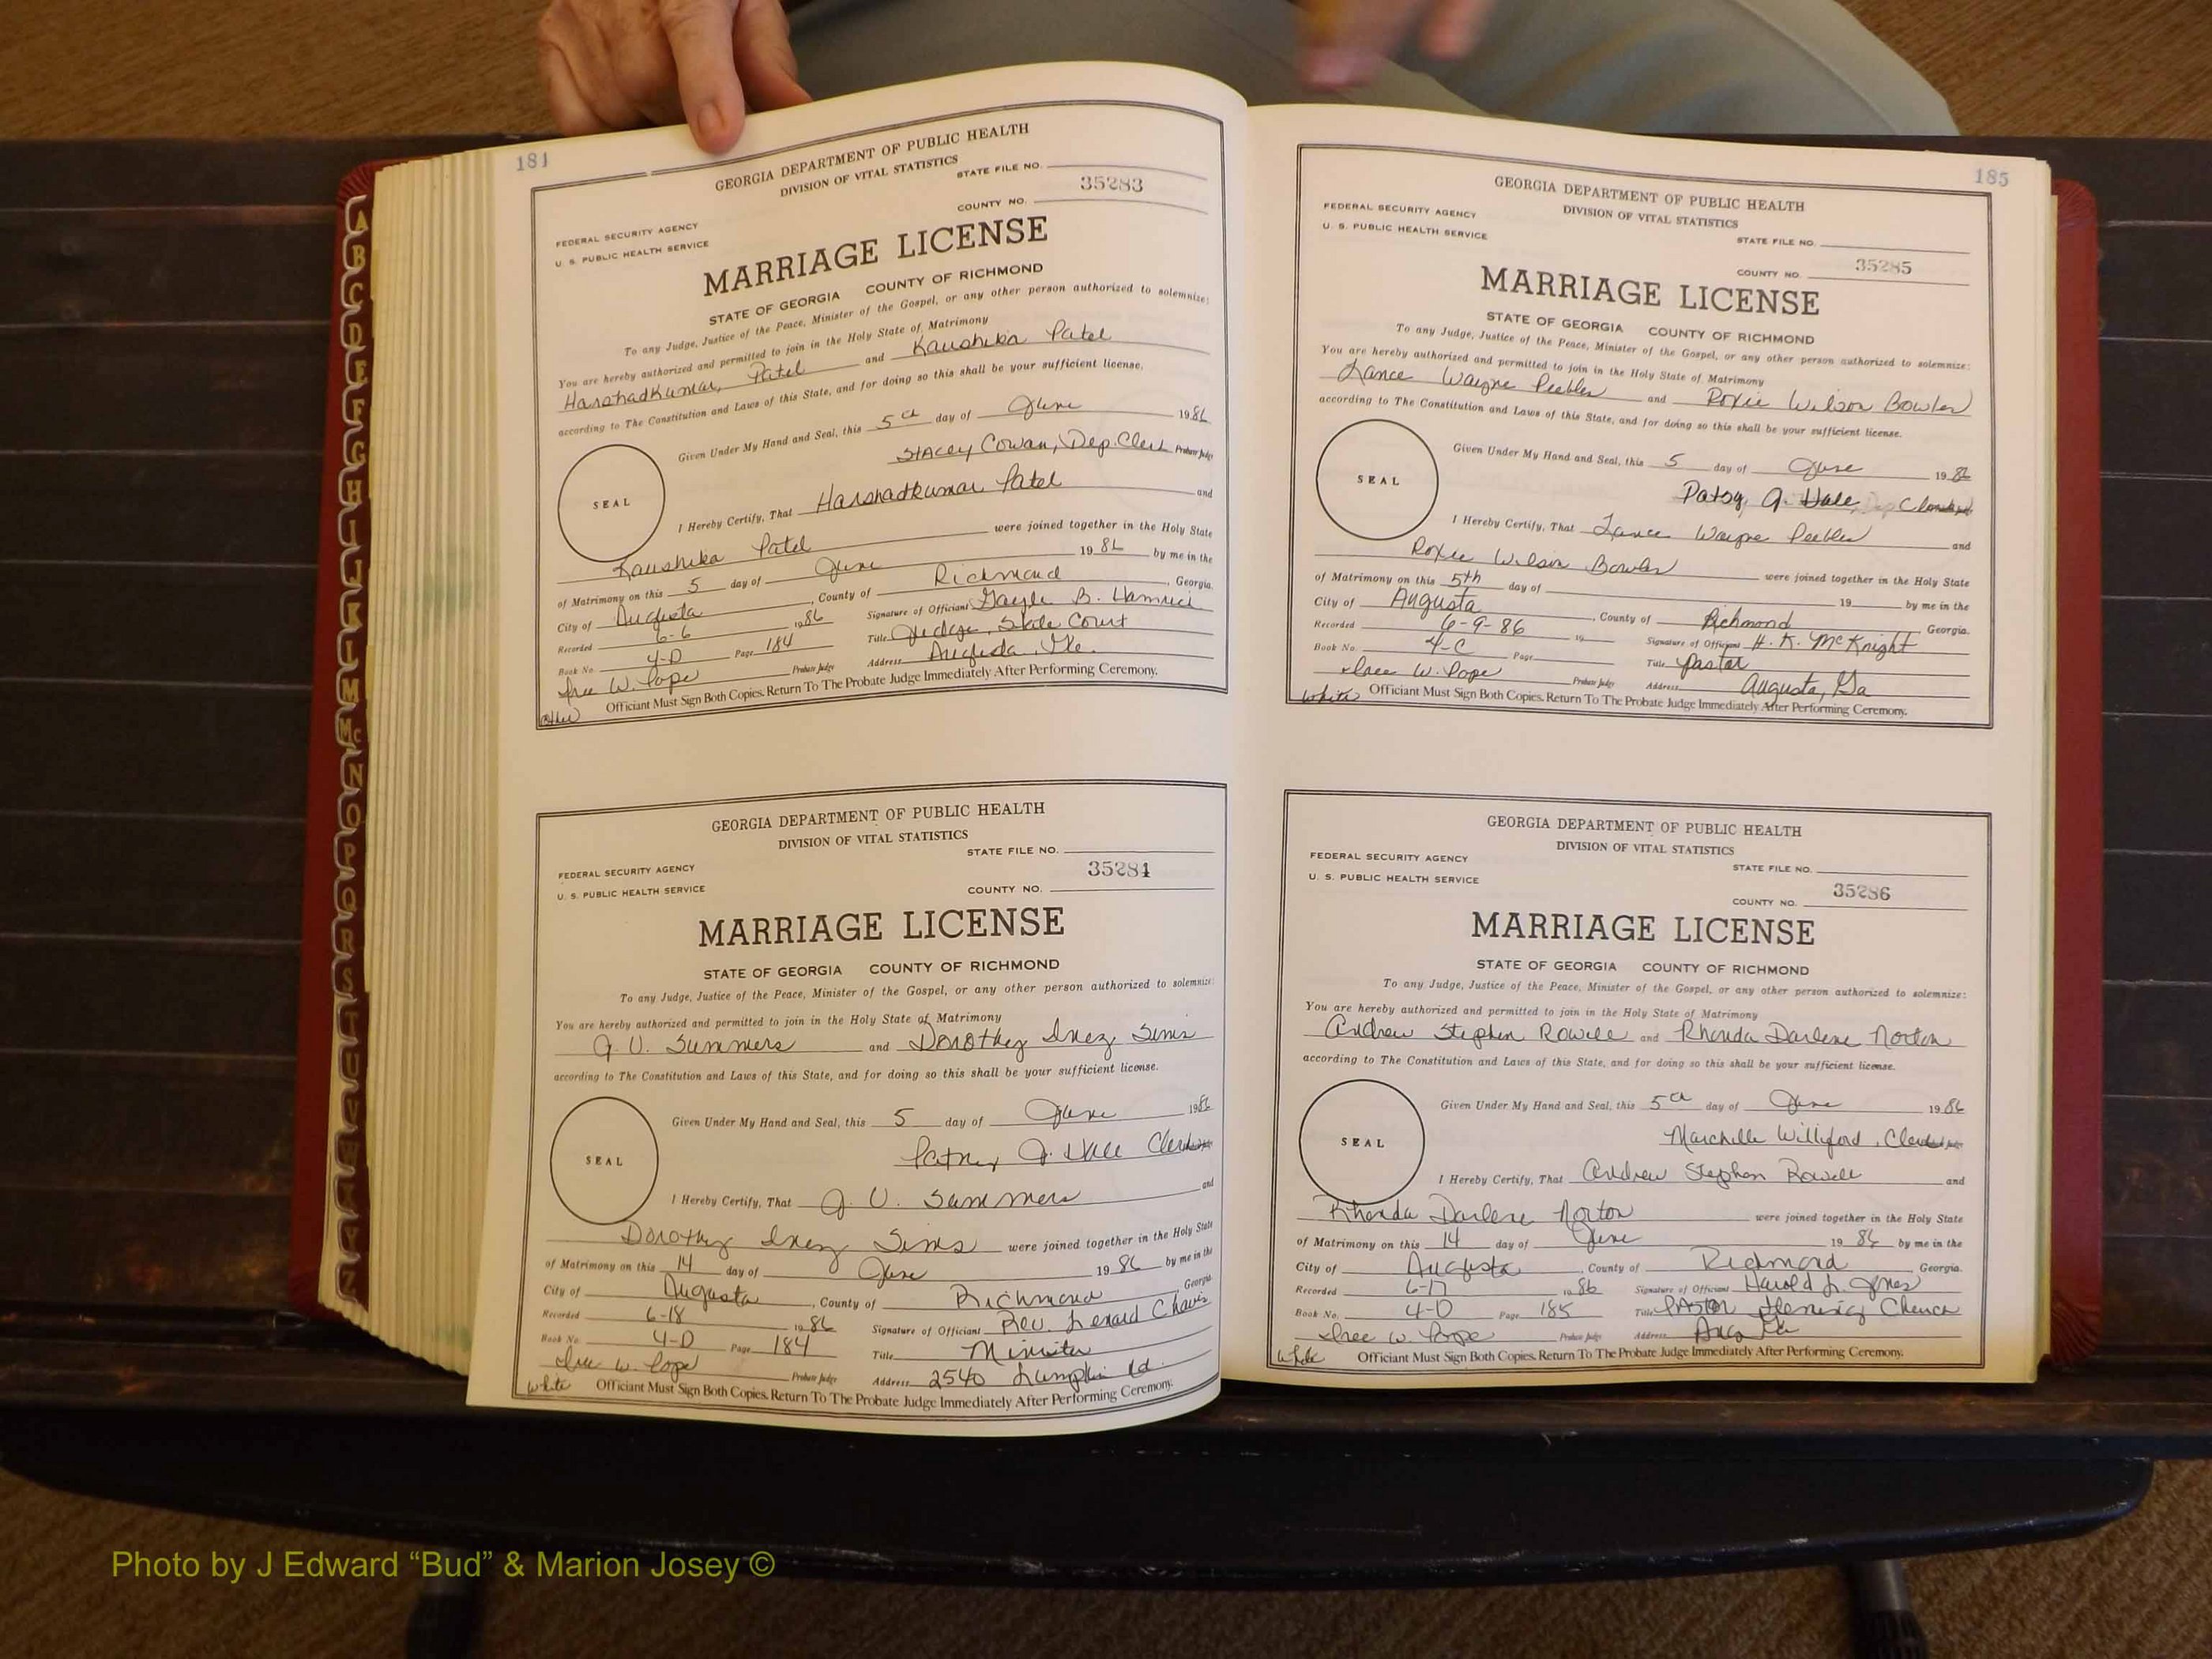 184
GEORGIA DEPARTMENT OF PUBLIC HEALTH
DIVISION OF VITAL STATISTICS
STATE FILE NO.
35283
FEDERAL SECURITY AGENCY
COUNTY NO.
U. S. PUBLIC HEALTH SERVICE
MARRIAGE LICENSE
STATE OF GEORGIA COUNTY OF RICHMOND
To any Judge, Justice of the Peace, Minister of the Gospel, or any other person authorized to solemnize:
You are hereby authorized and permitted to join in the Holy State of Matrimony
Harshadkumar Patel and Kaushika Patel
according to The Constitution and Laws of this State, and for doing so this shall be your sufficient license.
Given Under My Hand and Seal, this 5th day of June 1986
Stacey Cowan, Dep. Clerk Probate Judge
SEAL
I Hereby Certify, That Harshadkumar Patel and
Kaushika Patel were joined together in the Holy State
of Matrimony on this 5 day of June 1986 by me in the
City of Augusta, County of Richmond, Georgia.
Recorded 6-6 1986 Signature of Officiant Gayle B. Hamrick
Book No. 4-D Page 184 Title Judge, State Court
W. Pope Probate Judge Address Augusta, Ga.
other Officiant Must Sign Both Copies. Return To The Probate Judge Immediately After Performing Ceremony.
GEORGIA DEPARTMENT OF PUBLIC HEALTH
DIVISION OF VITAL STATISTICS
STATE FILE NO.
FEDERAL SECURITY AGENCY
35284
U. S. PUBLIC HEALTH SERVICE
COUNTY NO.
MARRIAGE LICENSE
STATE OF GEORGIA COUNTY OF RICHMOND
To any Judge, Justice of the Peace, Minister of the Gospel, or any other person authorized to solemnize:
You are hereby authorized and permitted to join in the Holy State of Matrimony
J. U. Summers and Dorothy Inez Sims
according to The Constitution and Laws of this State, and for doing so this shall be your sufficient license.
Given Under My Hand and Seal, this 5 day of June 1986
Patsy J. Hall Clerk
SEAL
I Hereby Certify, That J. U. Summers and
Dorothy Inez Sims were joined together in the Holy State
of Matrimony on this 14 day of June 1986 by me in the
City of Augusta, County of Richmond Georgia.
Recorded 6-18 1986 Signature of Officiant Rev. Lenard Chavis
Book No. 4-D Page 184 Title Minister
W. Pope Probate Judge Address 2540 Lumpkin Rd.
white Officiant Must Sign Both Copies. Return To The Probate Judge Immediately After Performing Ceremony.
185
GEORGIA DEPARTMENT OF PUBLIC HEALTH
DIVISION OF VITAL STATISTICS
FEDERAL SECURITY AGENCY
U. S. PUBLIC HEALTH SERVICE
STATE FILE NO.
COUNTY NO. 35285
MARRIAGE LICENSE
STATE OF GEORGIA COUNTY OF RICHMOND
To any Judge, Justice of the Peace, Minister of the Gospel, or any other person authorized to solemnize:
You are hereby authorized and permitted to join in the Holy State of Matrimony
Lance Wayne Peebles and Roxie Wilson Bowler
according to The Constitution and Laws of this State, and for doing so this shall be your sufficient license.
Given Under My Hand and Seal, this 5 day of June 1986
Patsy J. Hall, Dep Clerk
SEAL
I Hereby Certify, That Lance Wayne Peebles and
Roxie Wilson Bowler were joined together in the Holy State
of Matrimony on this 5th day of 19 by me in the
City of Augusta, County of Richmond Georgia.
Recorded 6-9-86 19 Signature of Officiant H. K. McKnight
Book No. 4-C Page Title Pastor
W. Pope Probate Judge Address Augusta, Ga
white Officiant Must Sign Both Copies. Return To The Probate Judge Immediately After Performing Ceremony.
GEORGIA DEPARTMENT OF PUBLIC HEALTH
DIVISION OF VITAL STATISTICS
FEDERAL SECURITY AGENCY
STATE FILE NO.
U. S. PUBLIC HEALTH SERVICE
COUNTY NO. 35286
MARRIAGE LICENSE
STATE OF GEORGIA COUNTY OF RICHMOND
To any Judge, Justice of the Peace, Minister of the Gospel, or any other person authorized to solemnize:
You are hereby authorized and permitted to join in the Holy State of Matrimony
Andrew Stephen Rowell and Rhonda Darlene Norton
according to The Constitution and Laws of this State, and for doing so this shall be your sufficient license.
Given Under My Hand and Seal, this 5th day of June 1986
Marchelle Williford, Clerk
SEAL
I Hereby Certify, That Andrew Stephen Rowell and
Rhonda Darlene Norton were joined together in the Holy State
of Matrimony on this 14 day of June 1986 by me in the
City of Augusta, County of Richmond Georgia.
Recorded 6-17 1986 Signature of Officiant Harold L. Jones
Book No. 4-D Page 185 Title Pastor Church
W. Pope Probate Judge Address Aug Ga
white Officiant Must Sign Both Copies. Return To The Probate Judge Immediately After Performing Ceremony.
A
B
C
D
E
F
G
H
I
J
K
L
M
Mc
N
O
P
Q
R
S
T
U
V
W
X
Y
Z
Photo by J Edward “Bud” & Marion Josey ©